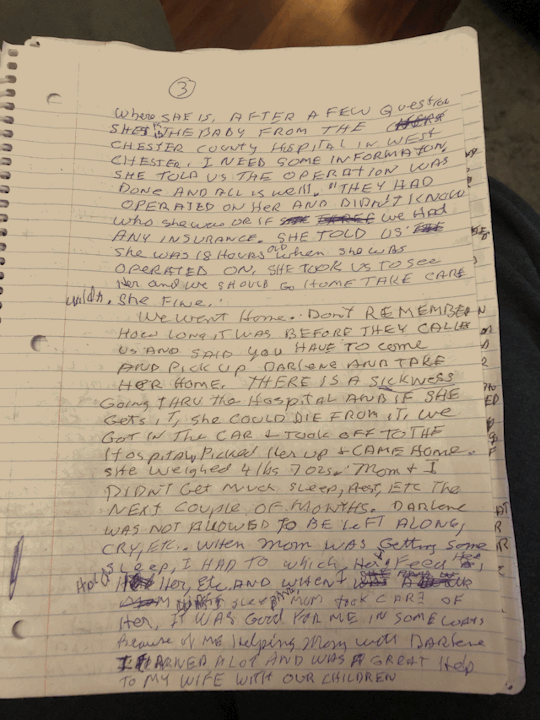 3
Where SHE IS, AFTER A FEW Question
SHE IS THE BABY FROM THE
CHESTER COUNTY HOSPITAL IN WEST
CHESTER. I NEED SOME INFORMATION,
SHE TOLD US THE OPERATION WAS
DONE AND ALL IS WELL. "THEY HAD
OPERATED ON HER AND DIDN'T KNOW
WHO she was OR IF we HAD
ANY INSURANCE. SHE TOLD US
She WAS 18 HOURS OLD when she WAS
OPERATED ON. SHE TOOK US TO See
Her and we SHOULD Go HOME TAKE CARE
She FINE.
We Went Home. Don't REMEMBER
How long it WAS BEFORE THEY CALLED
US AND SAID YOU HAVE TO come
AND PICK UP DARLENE AND TAKE
HER HOME. THERE IS A SICKNESS
Going THRU the HOSPITAL AND IF SHE
Gets IT, she COULD DIE FROM IT, we
GOT IN THE CAR & TOOK OFF TO THE
Hospital, PICKED HER UP & CAME HOME.
She weighed 4 lbs 7 ozs. Mom & I
DIDN'T Get Much Sleep, Rest, Etc THE
NEXT COUPLE OF MONTHS. DARLENE
WAS NOT ALLOWED TO BE LEFT ALONG,
CRY, Etc. When Mom WAS Getting Some
Sleep, I HAD TO which Her, Feed Her,
Hold Her, Etc. AND WHEN I WAS
sleeping, Mom took CARE OF
Her, IT WAS Good FOR ME IN SOME WAYS
Because of ME Helping Mom with DARLENE
I LEARNED A LOT AND WAS A GREAT Help
TO MY WIFE WITH OUR CHILDREN